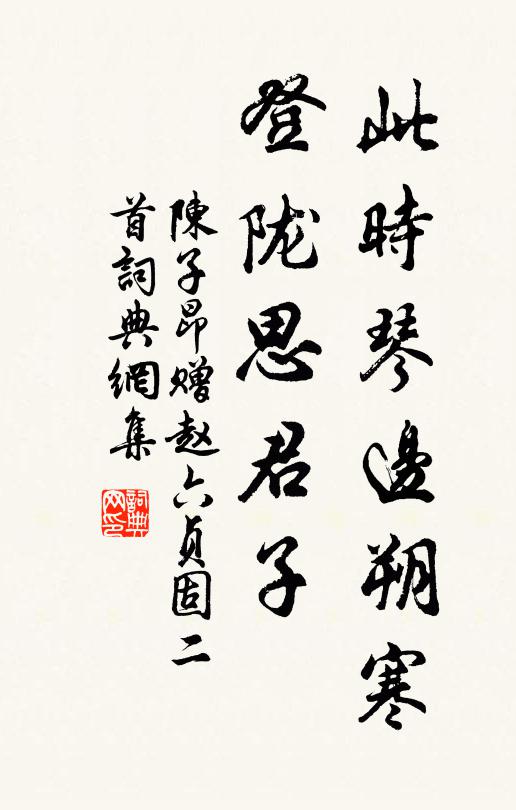 此時琴邊朔寒
登陇思君子
陳子昂赠赵六贞固二
首詞典網集
詞典网印